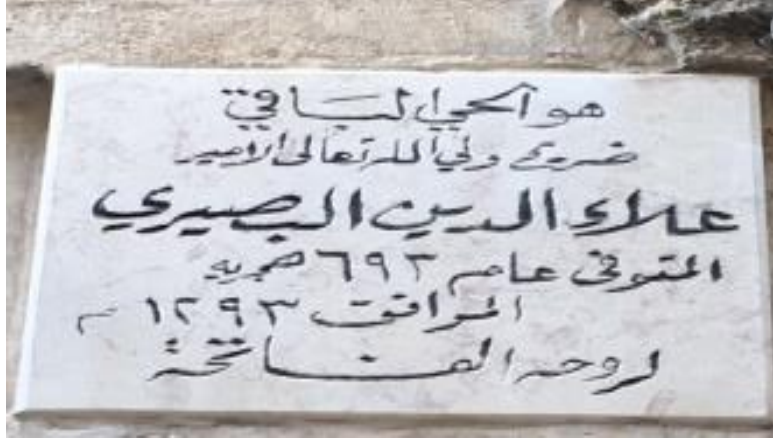 هو الحي الباقي
ضريح ولي الله تعالى الامير
علاء الدين البصيري
المتوفى عام ٦٩٣ هجرية
الموافق ١٢٩٣ م
لروحه الفاتحة